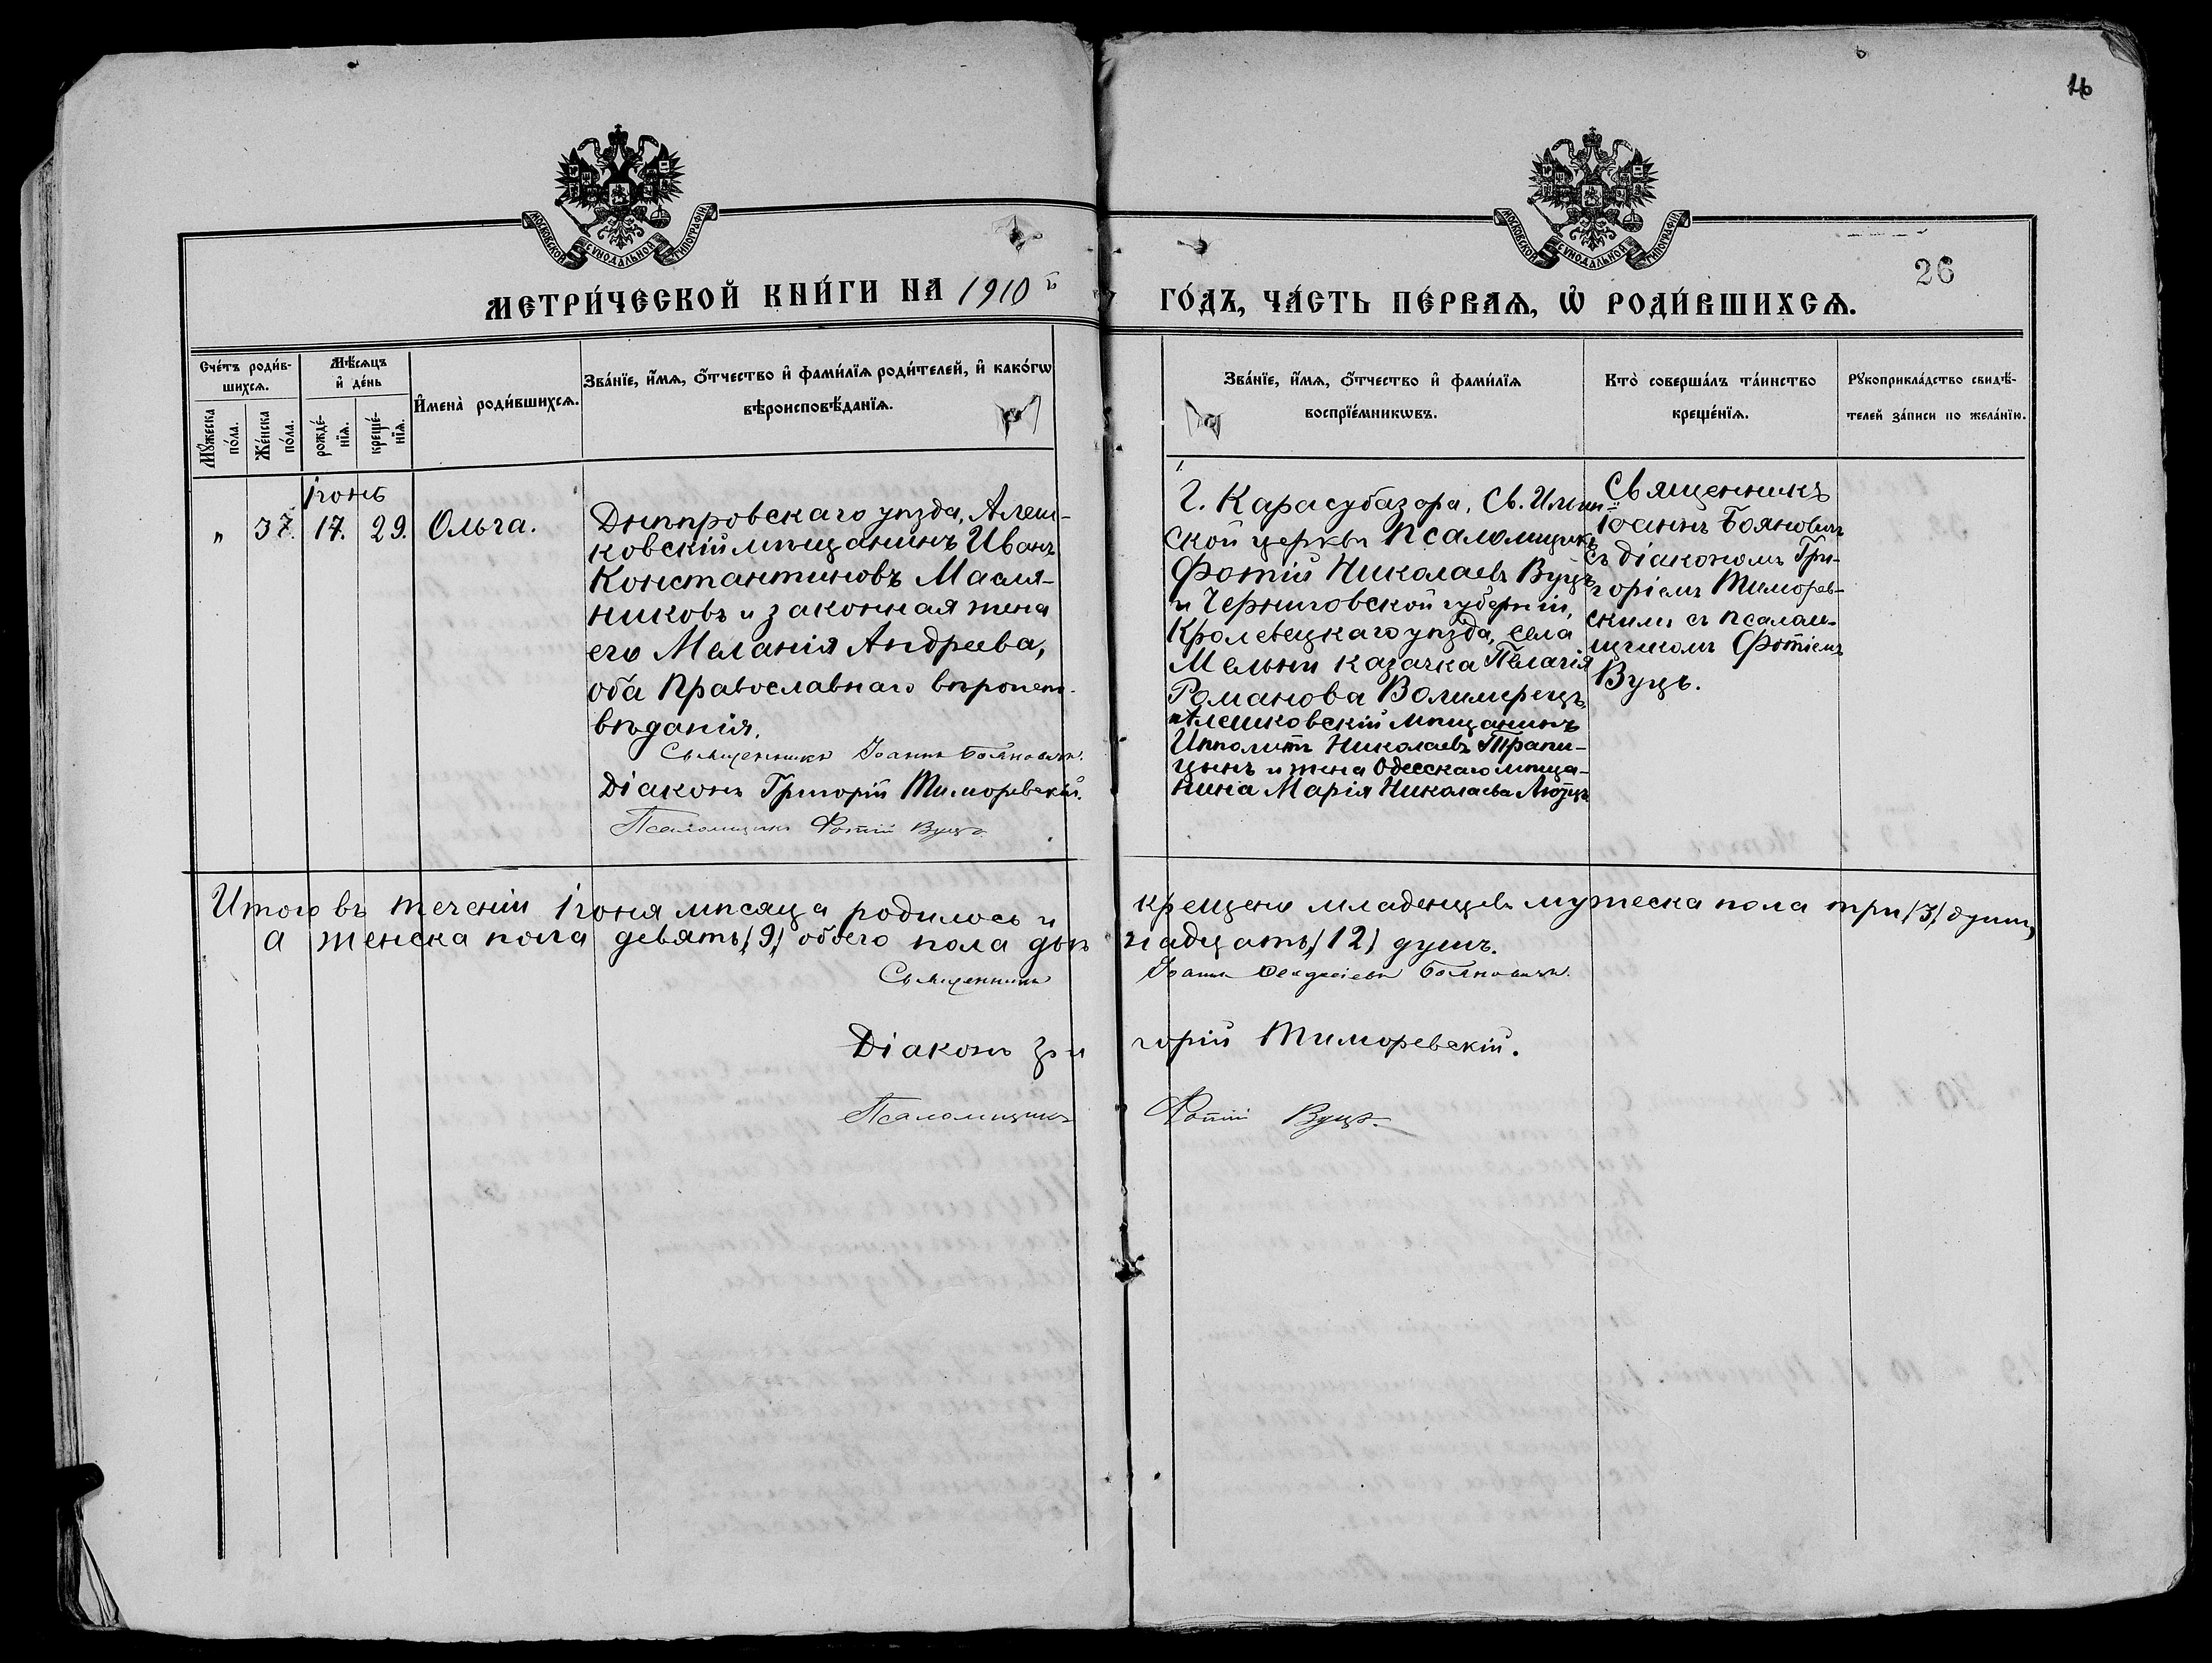 16
МОСКОВСКОЙ СѴНОДАЛЬНОЙ ТИПОГРАФІИ
МОСКОВСКОЙ СѴНОДАЛЬНОЙ ТИПОГРАФІИ
26
МЕТРИ́ЧЕСКОЙ КНИ́ГИ НА 1910й ГО́ДЪ, ЧА́СТЬ ПЕ́РВАѦ, Ѡ҆ РОДИ́ВШИХСѦ.
Сче́тъ роди́в-
шихсѧ.
Мꙋ́жеска по́ла.
Же́нска по́ла.
Мѣ́сѧцъ
и҆ де́нь
рожде́-
нїѧ.
креще́-
нїѧ.
И҆мена̀ роди́вшихсѧ.
Зва́нїе, и҆́мѧ, ѻ҆́тчество и҆ фами́лїѧ роди́телей, и҆ како́гѡ
вѣроисповѣ́данїѧ.
Зва́нїе, и҆́мѧ, ѻ҆́тчество и҆ фами́лїѧ
воспрїе́мникѡвъ.
Кто̀ соверша́лъ та́инство
креще́нїѧ.
Рꙋкоприкла́дство свидѣ́-
телей за́писи по жела́нїю.
Іюнь
" 37. 17. 29. Ольга.
Днѣпровскаго уѣзда, Алеш-
ковскій мѣщанинъ Иванъ
Константиновъ Масля-
никовъ и законная жена
его Меланія Андреева,
оба Православнаго вѣроиспо-
вѣданія.
Священникъ Іоаннъ Бояновичъ.
Діаконъ Григорій Тиморевскій.
Псаломщикъ Фотій Вуцъ.
Г. Карасубазара, Св. Ильин-
ской церкви Псаломщикъ
Фотій Николаевъ Вуцъ
и Черниговской губерніи,
Кролевецкаго уѣзда, села
Мельни казачка Пелагія
Романова
и Алешковскій мѣщанинъ
Ипполитъ Николаевъ Трапи-
цынъ и жена Одесскаго мѣща-
нина Марія Николаева
Священникъ
Іоаннъ Бояновичъ
съ діакономъ Гри-
горіемъ Тиморев-
скимъ съ псалом-
щикомъ Фотіемъ
Вуцъ.
Итого въ теченіи Іюня мѣсяца родилось и крещено младенцевъ мужеска пола три /3/ души,
а женска пола девять /9/ обоего пола двѣнадцать /12/ душъ.
Священникъ Іоаннъ Бояновичъ.
Діаконъ Григорій Тиморевскій.
Псаломщикъ Фотій Вуцъ.